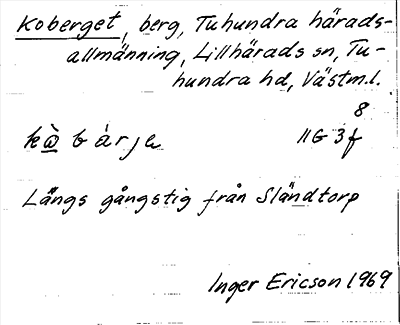 Koberget, berg, Tuhundra härads-
allmänning, Lillhärads sn, Tu-
hundra hd, Västm.l.
8
11G 3f
Längs gångstig från Sländtorp
Inger Ericson 1969